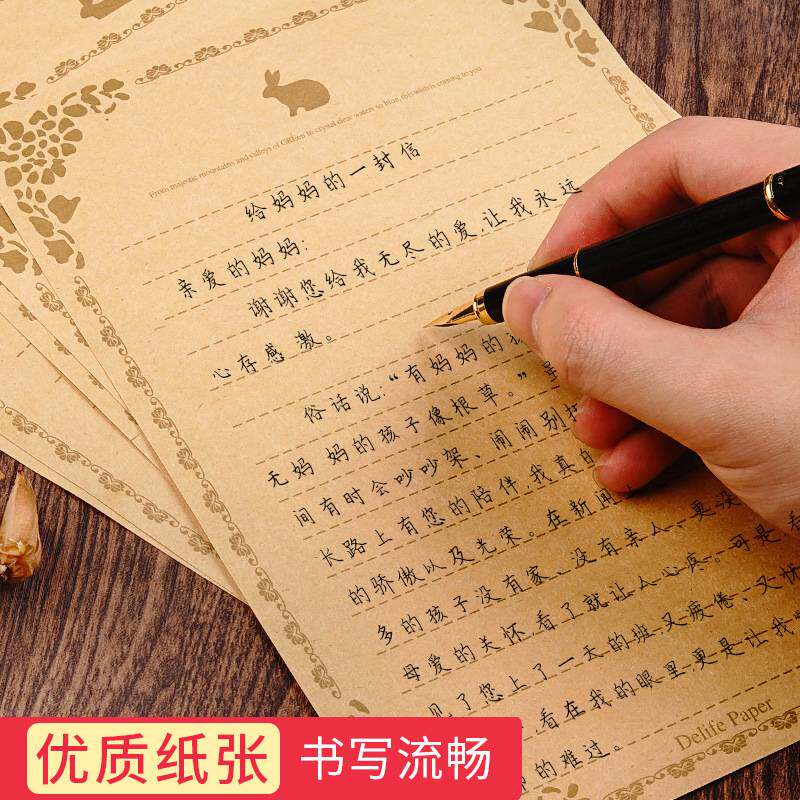 From majestic mountains and valleys of GREEn to crystal clear waters so blue, this wish is coming to you
给妈妈的一封信
亲爱的妈妈:
谢谢您给我无尽的爱,让我永远
心存感激。
俗话说:“有妈妈的
无妈妈的孩子像根草。”
间有时会吵吵架、闹闹别
长路上有您的陪伴,我真的
的骄傲以及光荣。在新闻
多的孩子没有家、没有亲人、更没
母爱的关怀,看了就让人心疼。可是看
见了您上了一天的班,又疲倦、又
看在我的眼里更是让我
的难过。
Delife Paper
优质纸张 书写流畅